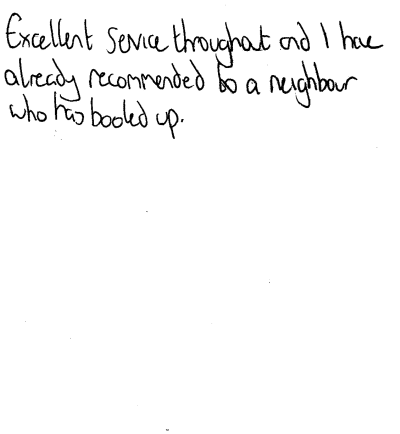 Excellent Service throughout and I have
already recommended to a neighbour
who has booked up.